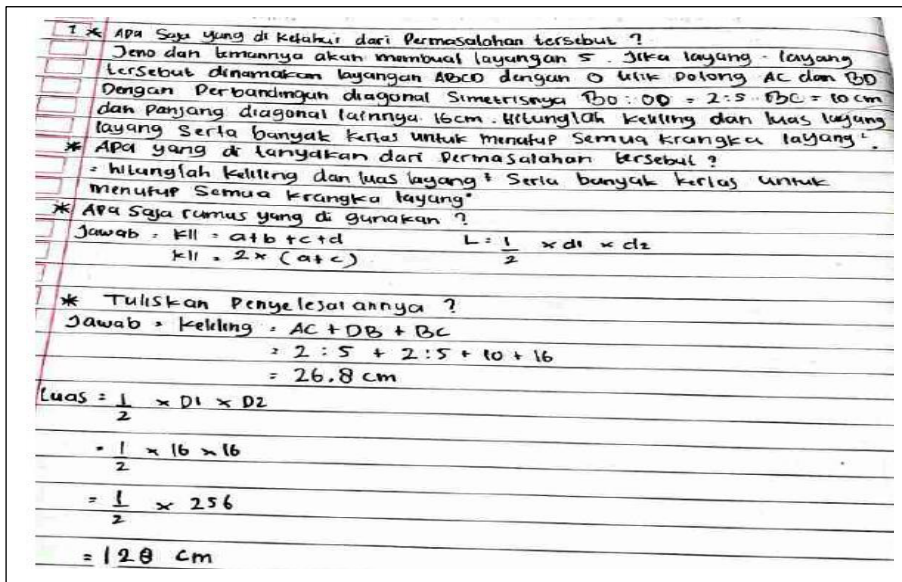 1 * Apa Saja yang di ketahui dari Permasalahan tersebut ?
Jeno dan temannya akan membuat layangan 5. Jika layang - layang
tersebut dinamakan layangan ABCD dengan O titik Potong AC dan BD
Dengan Perbandingan diagonal Simetrisnya BO : OD = 2:5. BC = 10 cm
dan Panjang diagonal lainnya 16cm. Hitunglah keliling dan luas layang
layang Serta banyak kertas untuk menutup Semua krangka layang².
* Apa yang di tanyakan dari Permasalahan tersebut ?
= hitunglah keliling dan luas layang² Serta banyak kertas untuk
menutup Semua krangka layang²
* Apa Saja rumus yang di gunakan ?
Jawab = kll = a+b+c+d L = 1/2 x d1 x d2
kll = 2x (a+c)
* Tuliskan Penyelesaiannya ?
Jawab = keliling = AC + DB + BC
= 2 : 5 + 2:5 + 10 + 16
= 26.8 cm
Luas = 1/2 x D1 x D2
= 1/2 x 16 x 16
= 1/2 x 256
= 128 cm